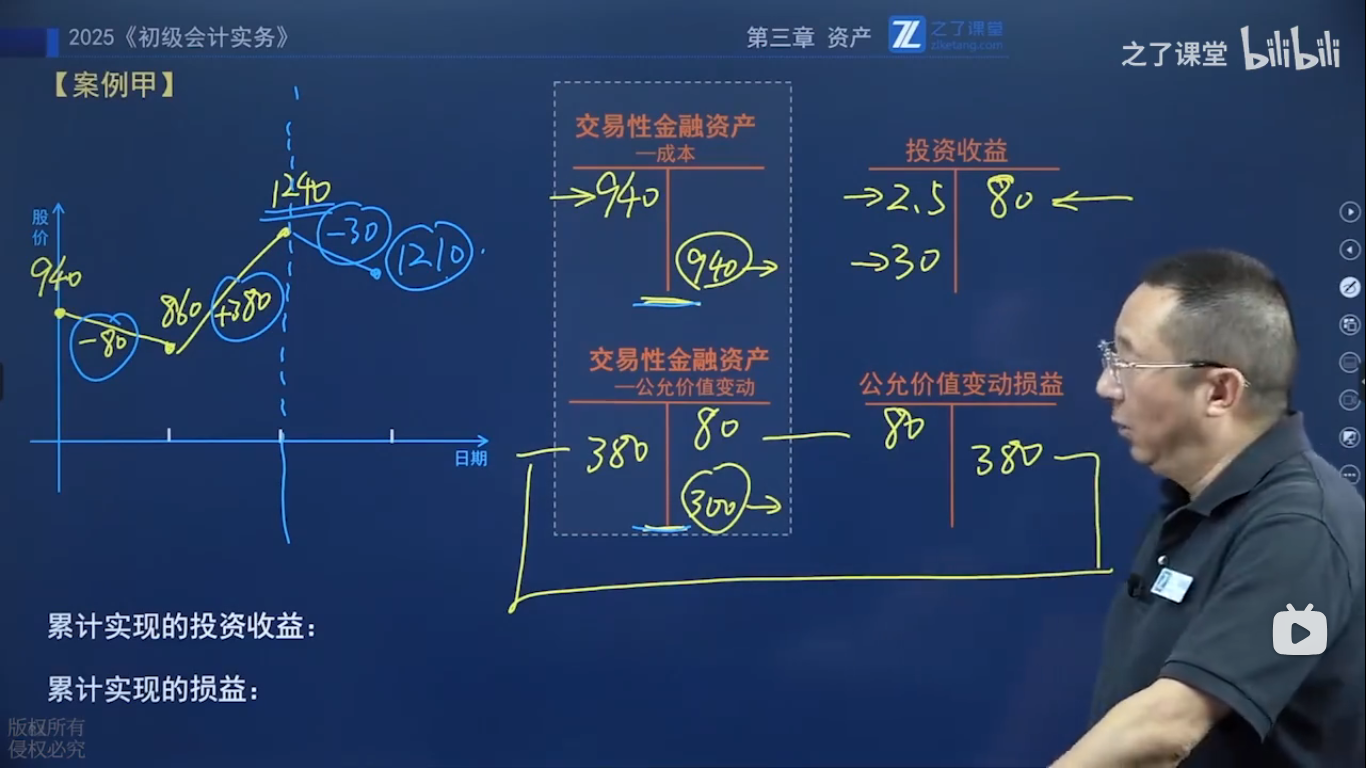 2025《初级会计实务》
第三章 资产
之了课堂
zlketang.com
之了课堂 bilibili
【案例甲】
股价
940
-80
860
+380
1240
-30
1210
日期
交易性金融资产
—成本
→940
940→
投资收益
→2.5
80←
→30
交易性金融资产
—公允价值变动
80
380
300→
公允价值变动损益
80
380
累计实现的投资收益：
累计实现的损益：
版权所有
侵权必究